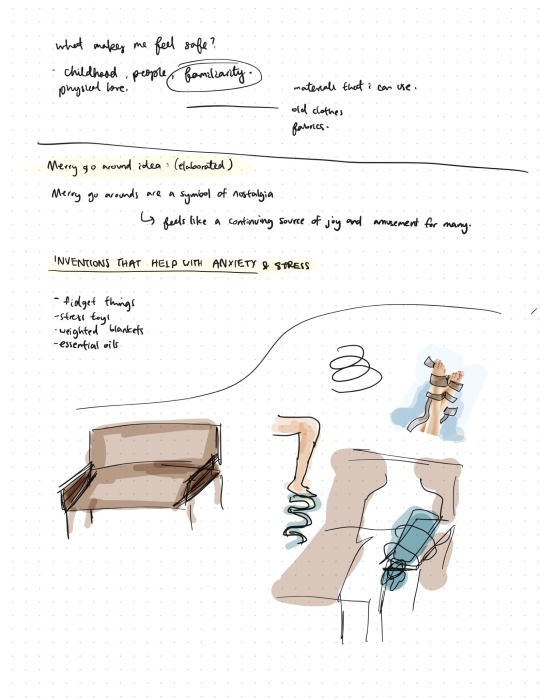 what makes me feel safe?
- childhood, people, familiarity.
physical love.
materials that i can use.
old clothes
fabrics.
Merry go around idea : (elaborated)
Merry go arounds are a symbol of nostalgia
↳ feels like a continuing source of joy and amusement for many.
INVENTIONS THAT HELP WITH ANXIETY & STRESS
- fidget things
- stress toys
- weighted blankets
- essential oils